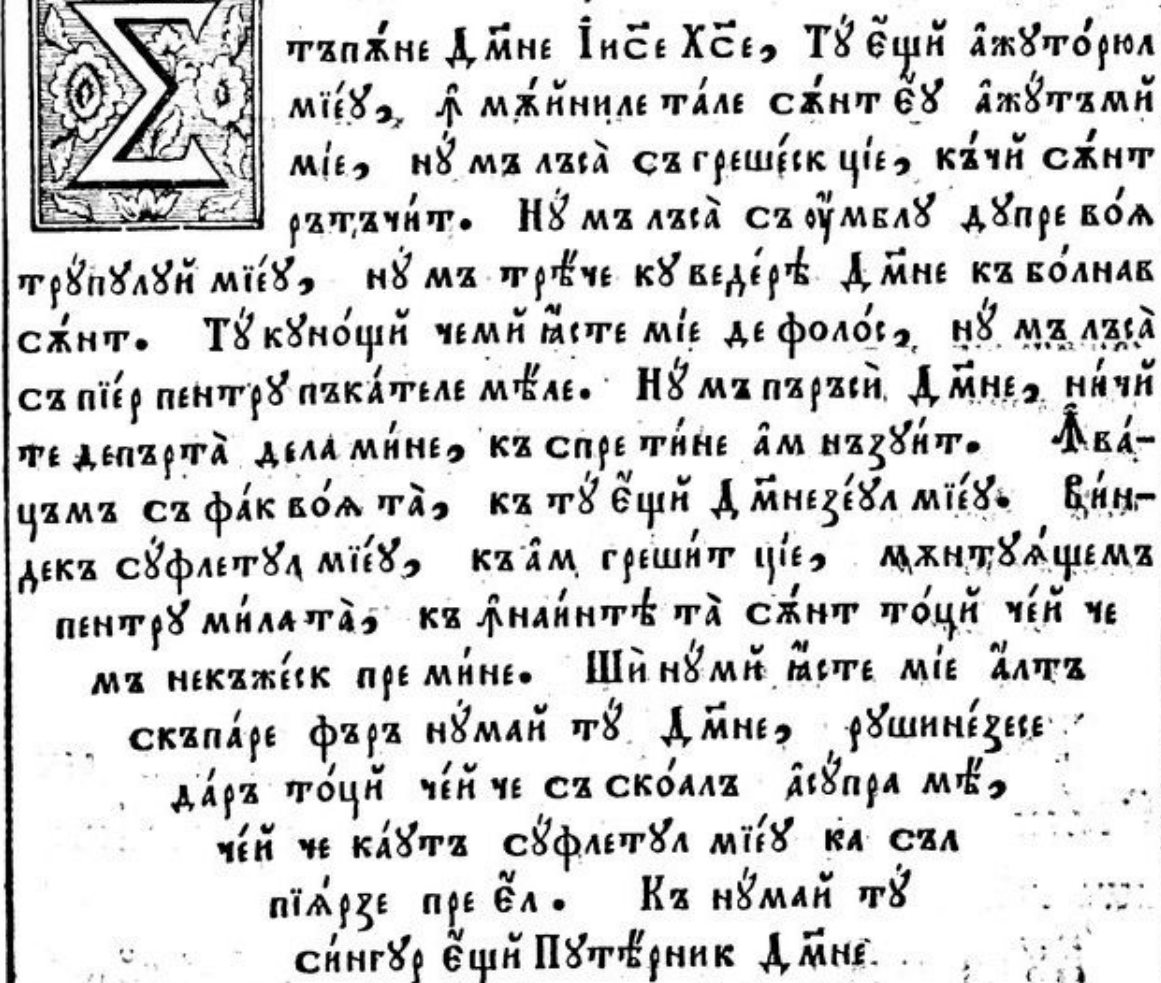 Ꙋ
тъпѫ́не Дм҃не І҆ис҃е Хс҃е, Тꙋ̀ є҆́щй а҆жꙋто́рюл
мїе́ꙋ, ꙟ҆ мѫ́йниле та́ле сѫ́нт є҆́ꙋ а҆жꙋ́тъмй
мі́е, нꙋ̀ мъ лъсà съ греше́ск ці́е, къ́чй сѫ́нт
рътъчи́т. Нꙋ̀ мъ лъсà съ оу҆́мблꙋ дꙋпре во́ѧ
трꙋ́пꙋлꙋй мїе́ꙋ, нꙋ̀ мъ трѣ́че кꙋ веде́рѣ Дм҃не къ бо́лнав
сѫ́нт. Тꙋ̀ кꙋно́щй чемй ꙗ҆́сте мі́е де фоло́с, нꙋ̀ мъ лъсà
съ пїе́р пентрꙋ пъка́теле мѣ́ле. Нꙋ̀ мъ пъръсѝ Дм҃не, ни́чй
те депъртà дела ми́не, къ спре ти́не а҆м нъзꙋи́т. Ꙟ҆ва́-
цъмъ съ фа́к во́ѧ тà, къ тꙋ̀ є҆́щй Дм҃незе́ꙋл мїе́ꙋ. Ви́н-
декъ сꙋ́флетꙋл мїе́ꙋ, къ а҆м греши́т ці́е, мѫнтꙋѧ́щемъ
пентрꙋ ми́ла тà, къ ꙟ҆наи́нтѣ тà сѫ́нт то́цй че́й че
мъ некъже́ск пре ми́не. Шѝ нꙋ́мй ꙗ҆́сте мі́е а҆́лтъ
скъпа́ре фъръ нꙋ́май тꙋ̀ Дм҃не, рꙋшине́зесе
да́ръ то́цй че́й че съ ско́алъ а҆сꙋ́пра мѣ̀,
че́й че ка́ꙋтъ сꙋ́флетꙋл мїе́ꙋ ка съл
пїѧ́рзе пре є҆́л. Къ нꙋ́май тꙋ̀
си́нгꙋр є҆́щй Пꙋтѣ́рник Дм҃не